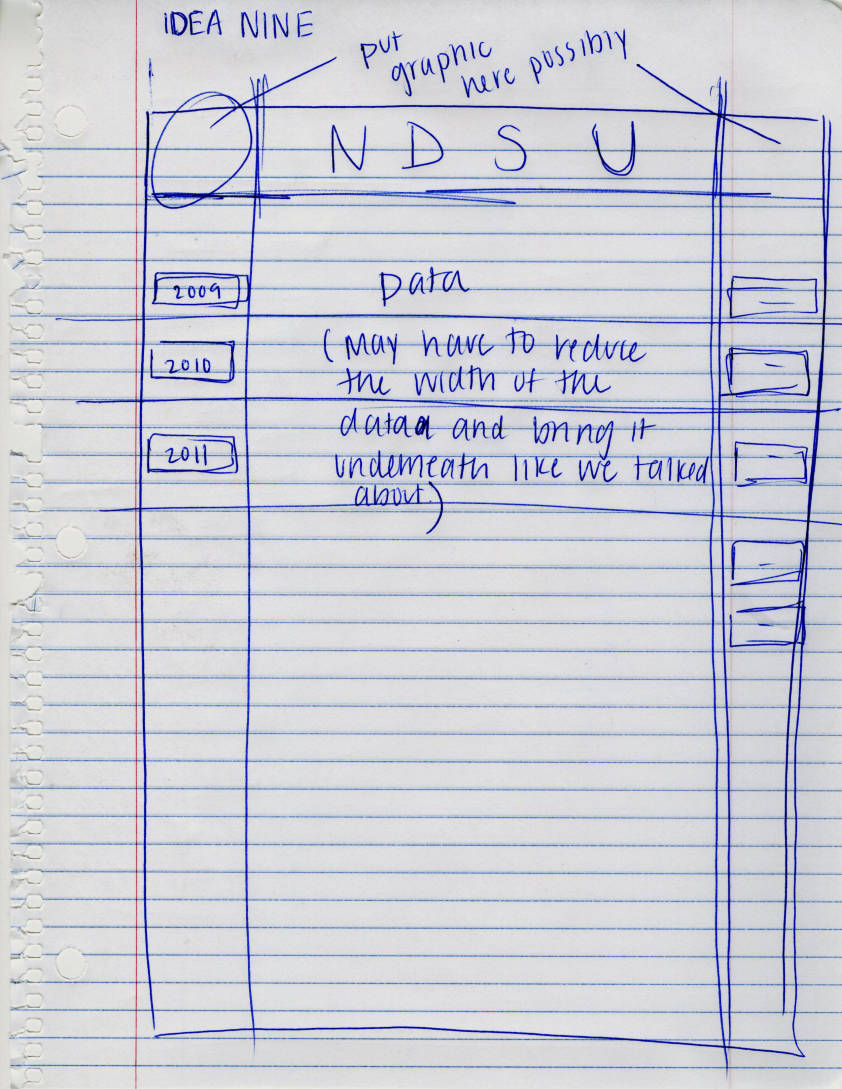 IDEA NINE
put
graphic
here possibly
N D S U
2009
Data
2010
(May have to reduce
the width of the
dataa and bring it
2011
underneath like we talked
about.)